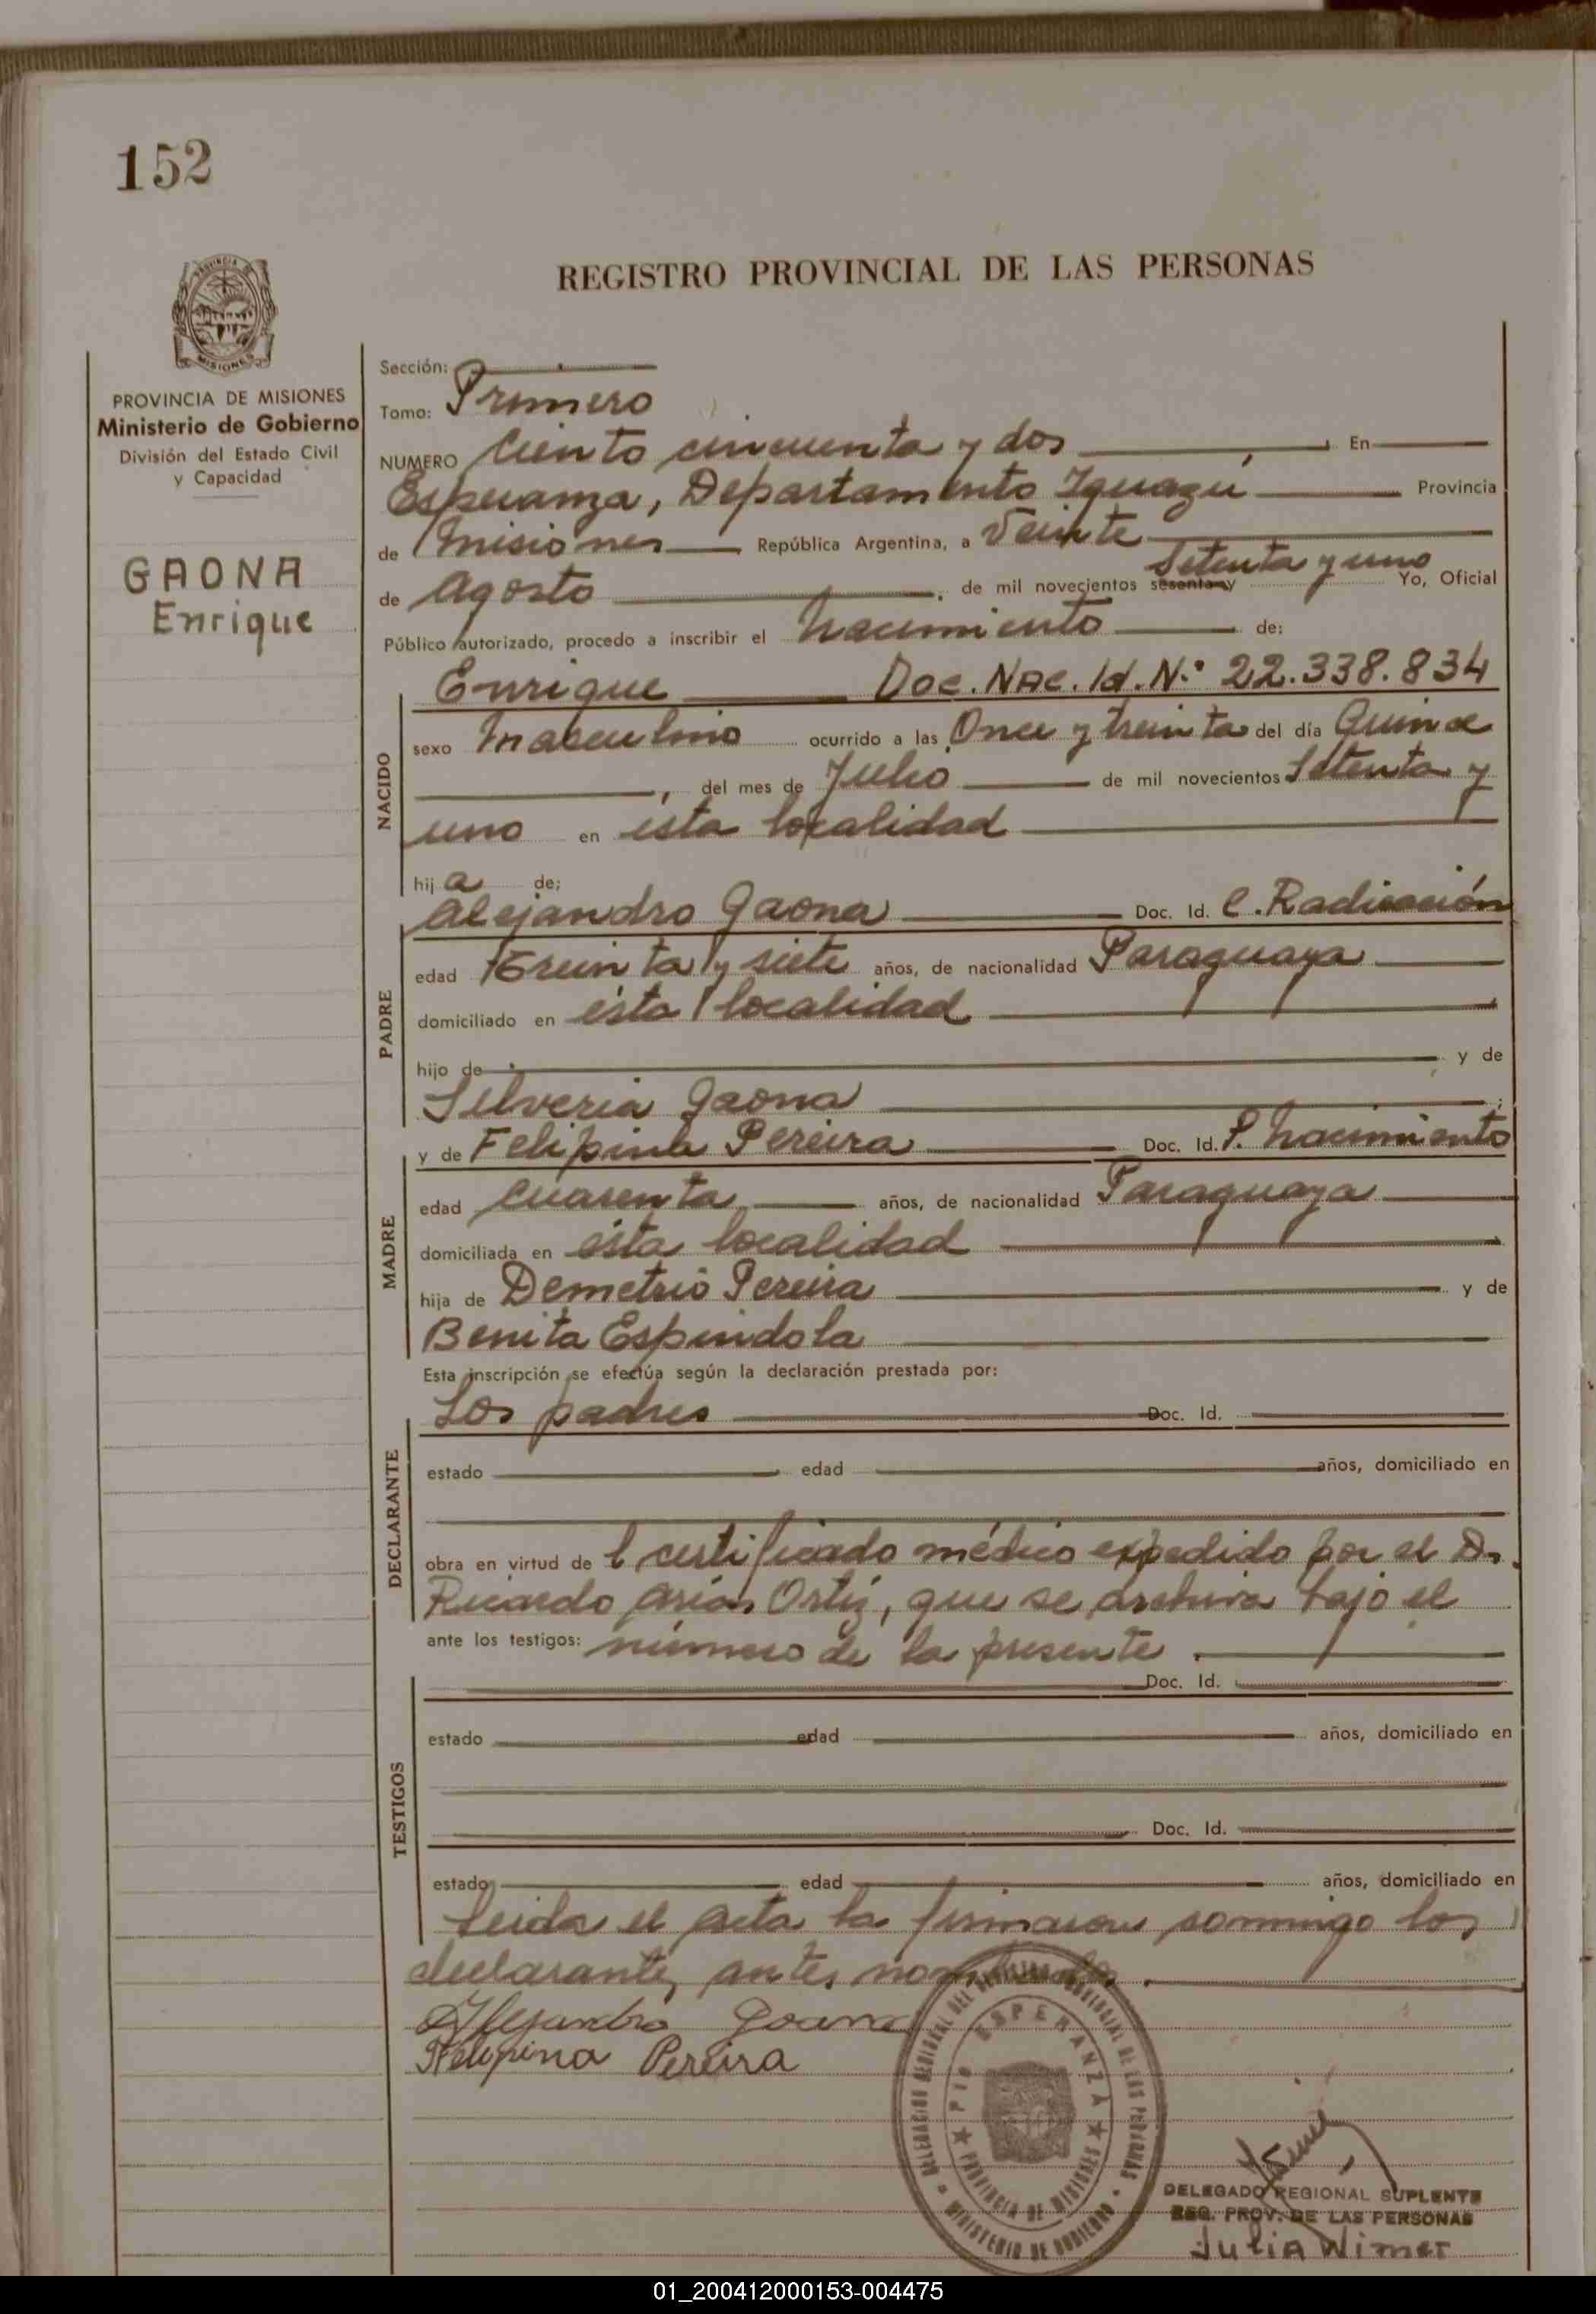 152
REGISTRO PROVINCIAL DE LAS PERSONAS
MISIONES
PROVINCIA DE MISIONES
Ministerio de Gobierno
División del Estado Civil
y Capacidad
GAONA
Enrique
Sección:
Tomo: Primero
NUMERO Ciento cincuenta y dos En
Esperanza, Departamento Iguazú Provincia
de Misiones República Argentina, a Veinte
de Agosto, de mil novecientos sesenta y Setenta y uno Yo, Oficial
Público autorizado, procedo a inscribir el Nacimiento de:
Enrique Doc. Nac. Id. N.º 22.338.834
NACIDO
sexo Masculino ocurrido a las Once y treinta del día Quince
, del mes de Julio de mil novecientos Setenta y
uno en ésta localidad
hij a de:
Alejandro Gaona Doc. Id. C. Radicación
PADRE
edad Treinta y siete años, de nacionalidad Paraguaya
domiciliado en ésta localidad
hijo de y de
Silveria Gaona ;
y de Felipina Pereira Doc. Id. P. Nacimiento
MADRE
edad Cuarenta años, de nacionalidad Paraguaya
domiciliada en ésta localidad
hija de Demetrio Pereira y de
Benita Espindola
Esta inscripción se efectúa según la declaración prestada por:
Los padres Doc. Id.
DECLARANTE
estado edad años, domiciliado en
obra en virtud de l certificado médico expedido por el Dr.
Ricardo Arias Ortiz, que se archiva bajo el
ante los testigos: número de la presente.
Doc. Id.
TESTIGOS
estado edad años, domiciliado en
Doc. Id.
estado edad años, domiciliado en
Leida el acta la firmaron conmigo los
declarantes antes nombrados.
Alejandro Gaona
Felipina Pereira
RIO ESPERANZA
PROVINCIA DE MISIONES
MINISTERIO DE GOBIERNO
DELEGADO REGIONAL SUPLENTE
REG. PROV. DE LAS PERSONAS
Julia Wimer
01_200412000153-004475